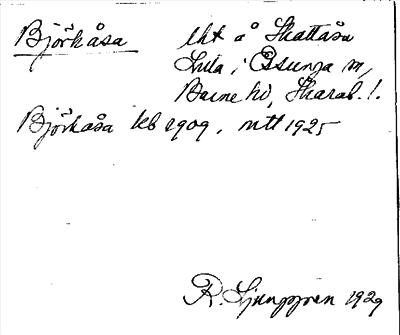 Björkåsa lht å Skattåsa
Lilla i Essunga sn,
Barne hd, Skarab. l.
Björkåsa kb 1909, mtl 1925
R. Ljunggren 1929